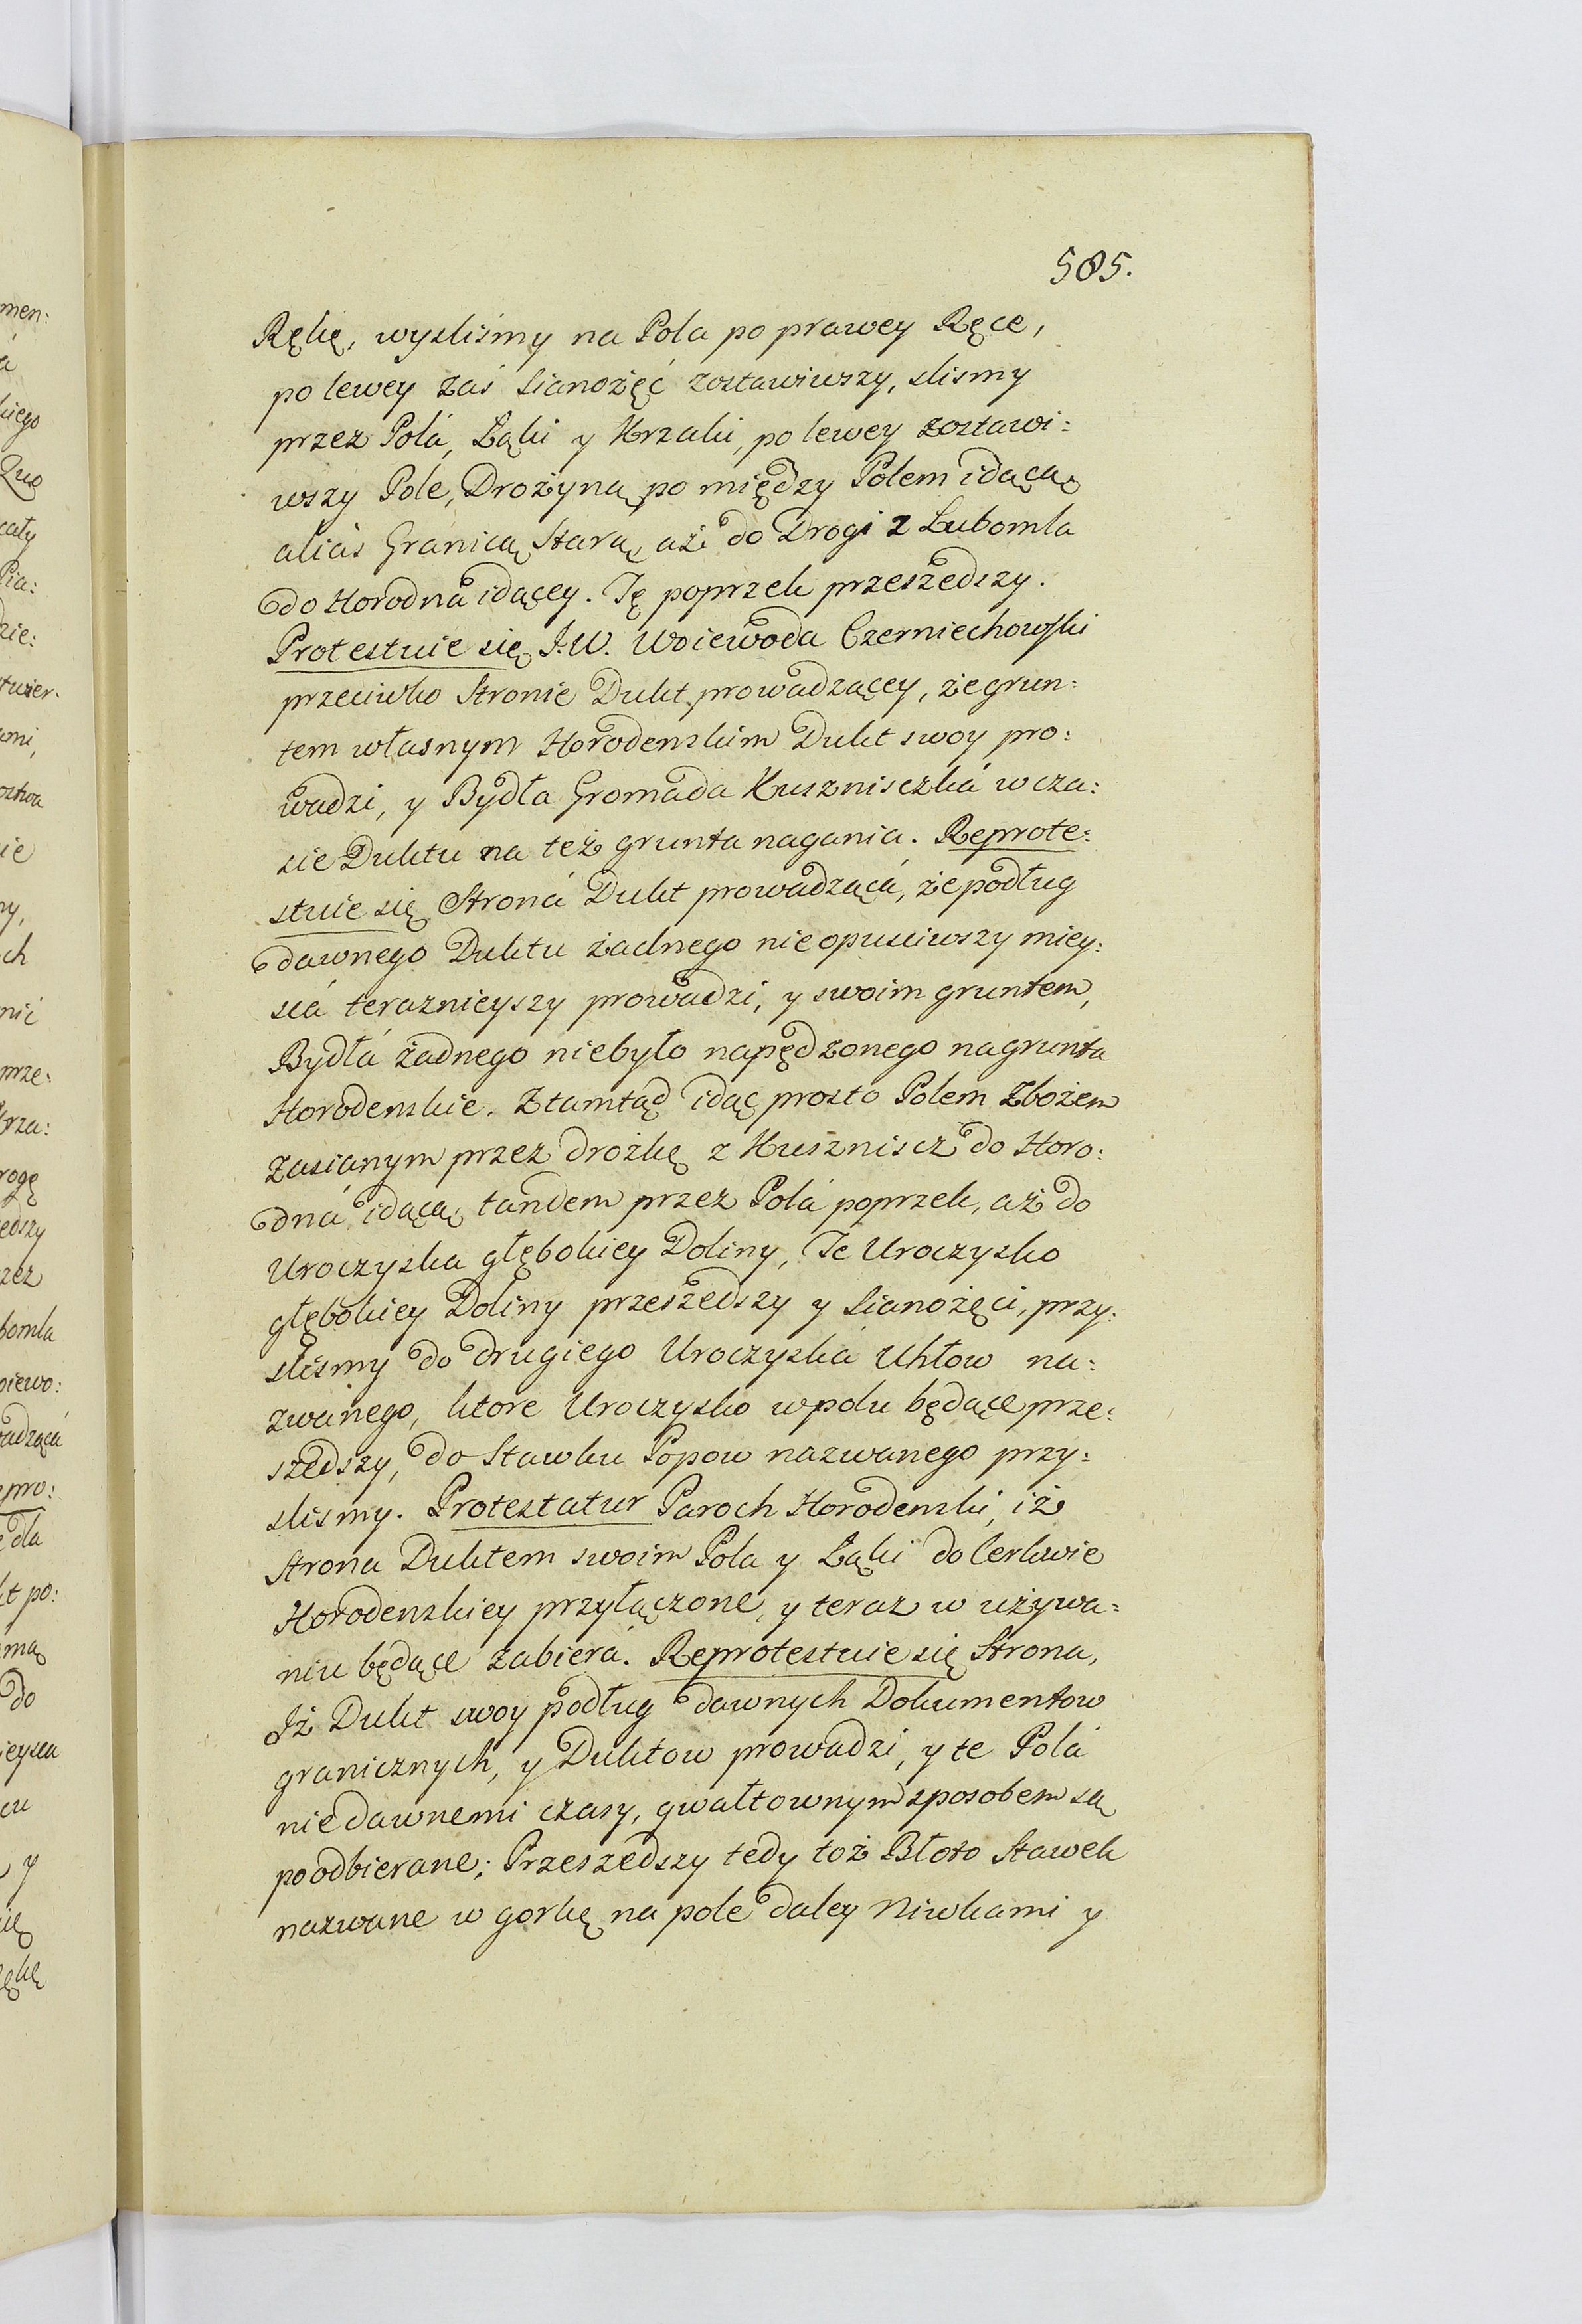 585.
Rękę, wysliśmy na Pola po prawey Ręce,
po lewey zaś Sianożęć zostawiwszy, slismy
przez Polá, Łąki y Krzaki, po lewey zostawi:
wszy Pole, Drożyną po między Polem idącą
aliás Gránicą Starą, aż do Drogi z Lubomla
do Horodná idącey. Tę poprzek przeszedszy.
Protestuie się J.W. Woiewoda Czerniechowski
przeciwko Stronie Dukt prowadzącey, że grun:
tem własnym Horodenskim Dukt swoy pro:
wadzi, y Bydła Gromada Kusznisczká w cza:
sie Duktu na też grunta nagania. Reprote:
stuie się Stroná Dukt prowadzącá, że podług
dawnego Duktu żadnego nie opuściwszy miey:
scá teraznieyszy prowadzi, y swoim gruntem,
Bydłá żadnego niebyło napędzonego na grunta
Horodenskie. Ztamtąd idąc prosto Polem Zbożem
zasianym przez drożkę z Kuszniscz do Horo:
dná idącą, tandem przez Polá poprzek, aż do
Uroczyska głębokiey Doliny, Te Uroczysko
głębokiey Doliny przeszedszy y Sianożęci, przy:
slismy do drugiego Uroczyská Uhłow na:
zwánego, ktore Uroczysko w polu będące prze:
szedszy, do Stawku Popow nazwanego przy:
slismy. Protestatur Paroch Horodenski, iż
Strona Duktem swoim Pola y Łąki do Cerkwie
Horodenskiey przyłączone, y teraz w używa:
niu będące zabierá. Reprotestuie się Strona,
Iż Dukt swoy podług dawnych Dokumentow
granicznych, y Duktow prowadzi, y te Polá
niedawnemi czasy, gwałtownym sposobem są
poodbierane; Przeszedszy tedy toż Błoto Stawek
nazwane w gorkę na pole daley Niwkami y